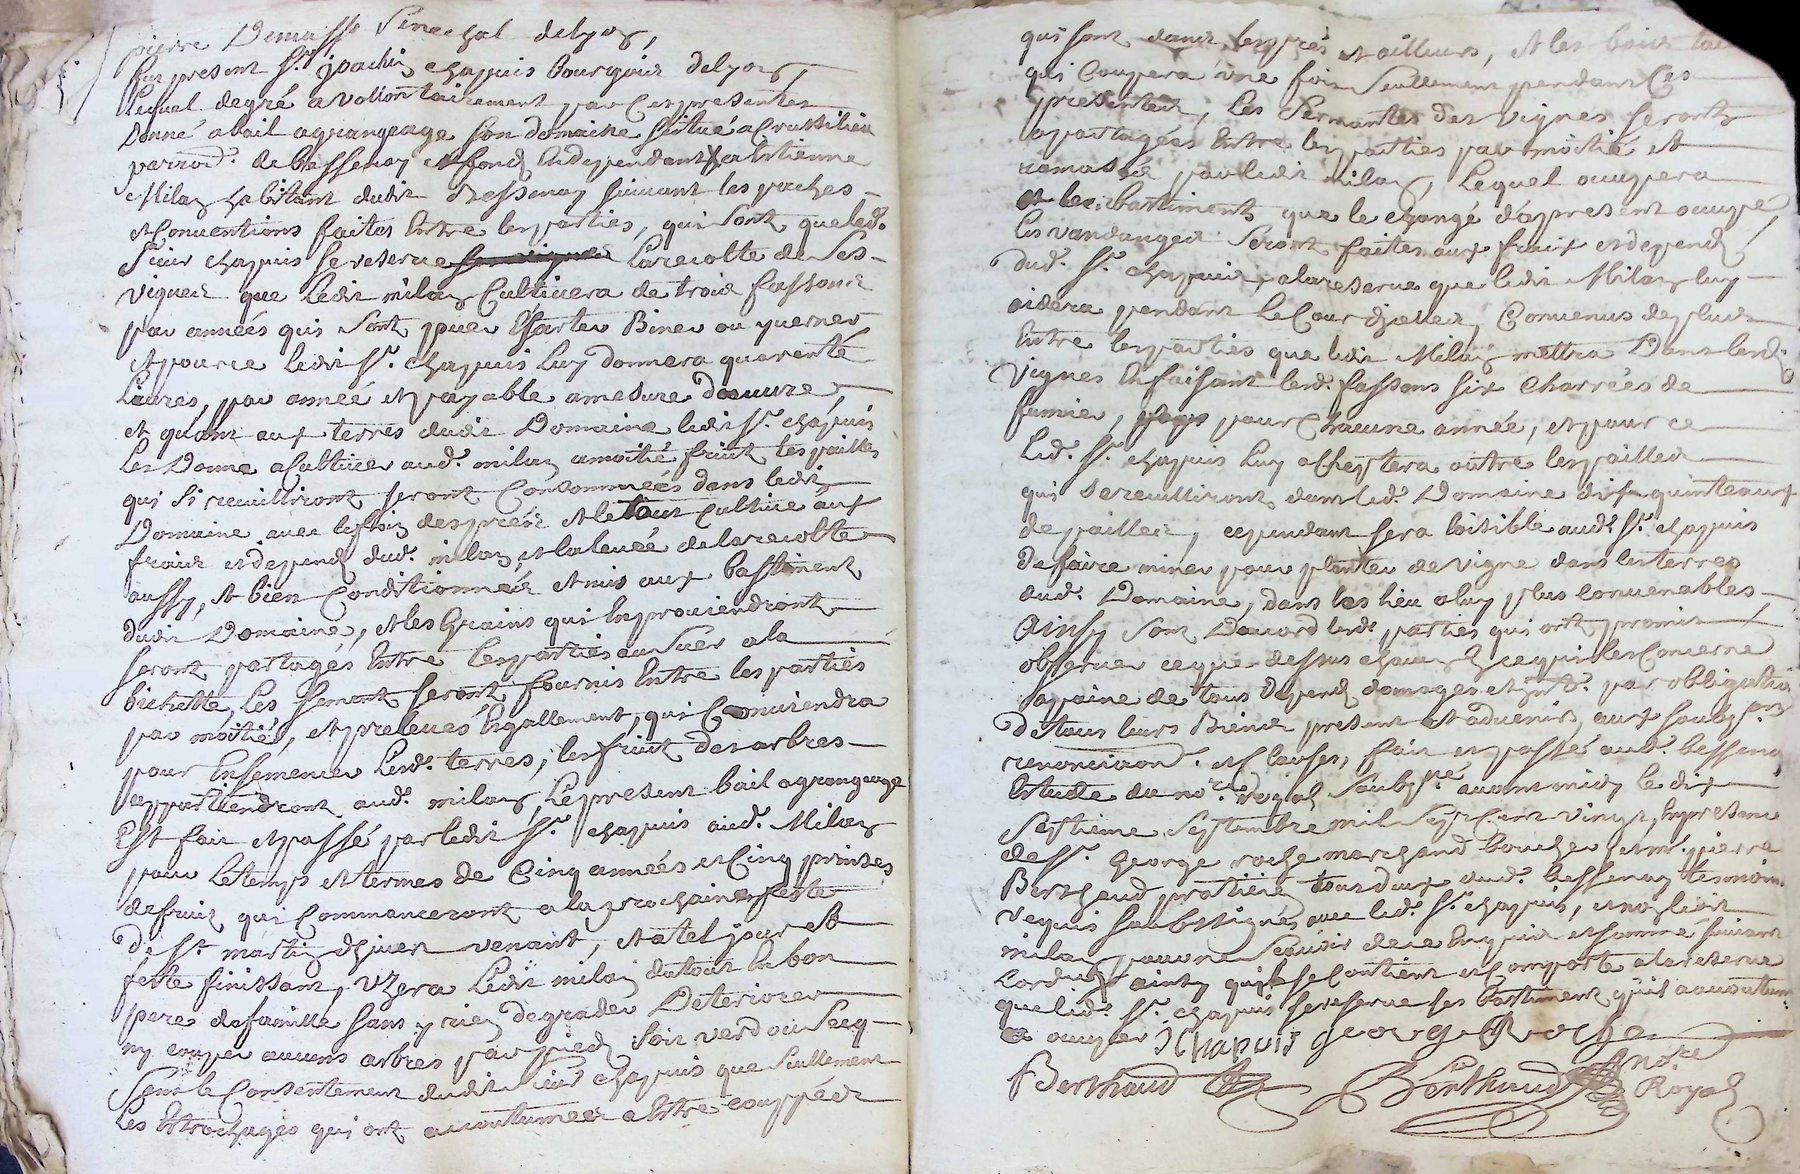 pierre Demasso Sénechal delyon,
fut present Sr. joachin chapuis bourgois delyon,
Lequel degré a vollontairement par Cespresentes
Donné abail agrangeage son domaine scitué a Crussilieu
parroid. de bessenay et fond Endependant a Estienne
Milan habitant dudit Bessenay suivant les paches
et Conventions faites Entre lesparties, qui sont queled.
Sieur chapuis se reserve ses vignes Larecolte de Ses
vignes que Ledit milan Cultivera de trois fassons
par années qui sont puer Essarter Biner ou
et pource Ledit Sr. chapuis Luy donnera quarente
Livres, par année et payable amesure d'oeuvre,
et quant aux terres dudit Domaine ledit Sr. chapuis
Les Donne aCultiver aud. milan amoitié fruit les pailles
qui si receuilliront seront Consommées dans ledit
Domaine avec lefoin després et le tout cultivé aux
fraix et depend dud. milan, et lalevée delarecolte
aussy, et bien Conditionnées et mis aux bastiment
dudit Domaine, et les Grains qui Enproviendront
seront partagés Entre lesparties au Suer ala
bichette, Les sement seront fournis Entre les parties
par moitié, et prelevés Esgallement, qui Conviendra
pour Ensemencer Lesd. terres, les fruit des arbres
appartiendront aud. milan, Lepresent bail agrangeage
Est fait et passé par ledit Sr. chapuis aud. Milan
pour Letemps et termes de Cinq années et Cinq prinses
defruit, qui Commenceront alaprochaine feste
De St. martin dhiver venant, et atel jour et
feste finissant, Uzera Ledit milan dutout En bon
pere defamille sans y rien degrader Deteriorer
ny couper aucuns arbres par pied soit verd ou Secq
Sans le Consentement dudit sieur chapuis que Seullement
Les Estrochages qui ont accoutumées a Estre couppées
qui sont dans lesprés et ailleurs, et les bois
qui Coupera une fois Seullement pendant Ces
presentes, Les Sermantes des vignes seront
apartagées Entre lesparties par moitié et
ramassé par ledit milan, Lequel occupera
et les bastiments que le changé dapresent occupe,
Les vandanges seront faites aux fraix et depend
dud. Sr. chapuis, alareserve que ledit Milan luy
aidera pendant Le Cour dicelles, Convenus deplus
Entre lesparties que ledit Milan mettra Dans lesd.
vignes Enfaisant lesd. fassons six Charrées de
fumier, pour Chacune année, et pour ce
Led. Sr. chapuis Luy acheptera outre lespailles
qui sereceuilliront dans led. Domaine dix quinteaux
de pailles, cependant sera loisible aud. Sr. chapuis
Defaire miner pour planter de vigne dans les terres
dud. Domaine, dans les lieu aluy plus Convenables
Ainsy sont Daccord lesd. parties qui ont promis
observer ceque dessus chacun En cequi les Concerne
apaine de tous Depend domages et jnt. par obligation
De tous leurs Biens present et advenir, aux
renonciaon. et Clauses, fait et passé aud. bessenay
Estude du nore. royal soubzné avant midy le dix
septieme Septembre mil Sept Cent vingt, Enpresence
de Sr. George roche marchand boucher et Mr. pierre
Berthaud pratitien tous deux dud. bessenay temoin
requis soubssignés avec led. Sr. chapuis, et non ledit
milan pour ne scavoir dece Enquis et sommé suivant
Lordce ainsy quil se Contient et Comporte alareserve
que led. Sr. chapuis sereserve ses bastiment quil a accoutumé
a occuper J Chapuis george Roche
Berthaud Berthaud Nore. Royal